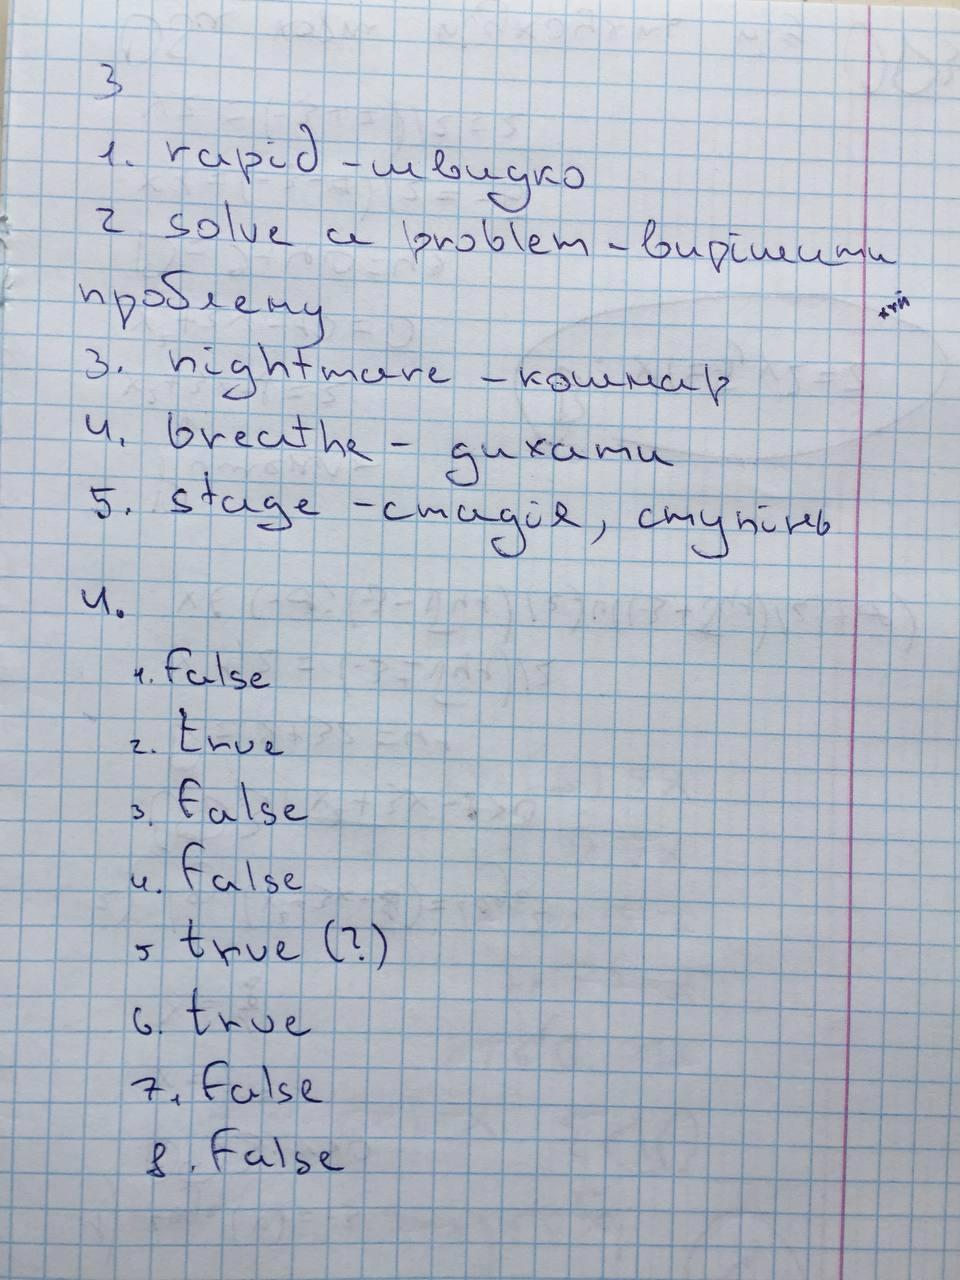 3
1. rapid - швидко
2 solve a problem - вирішити
проблему
3. nightmare - кошмар
4. breathe - дихати
5. stage - стадія, ступінь
4.
1. false
2. true
3. false
4. false
5 true (?)
6. true
7. false
8. false